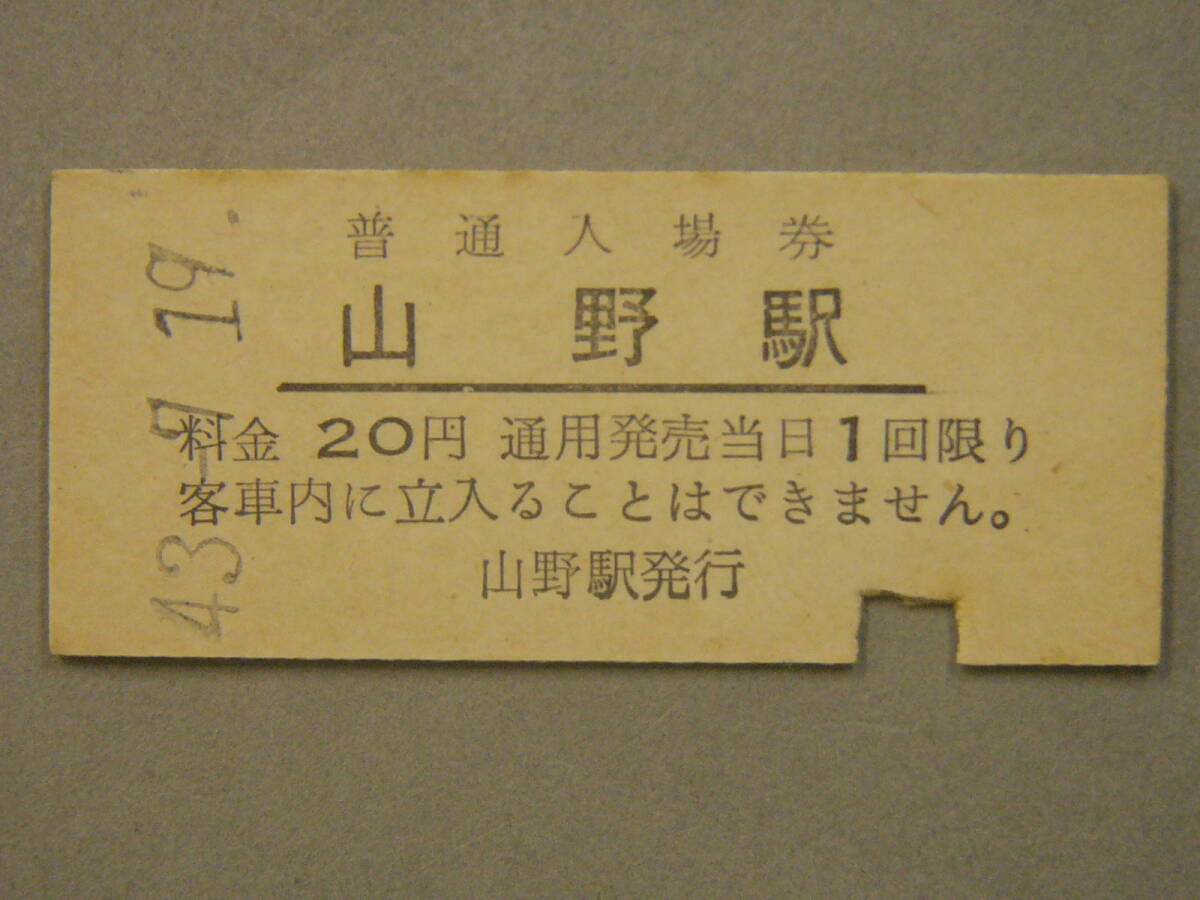 普通入場券
山野駅
料金 20円 通用発売当日1回限り
客車内に立入ることはできません。
山野駅発行